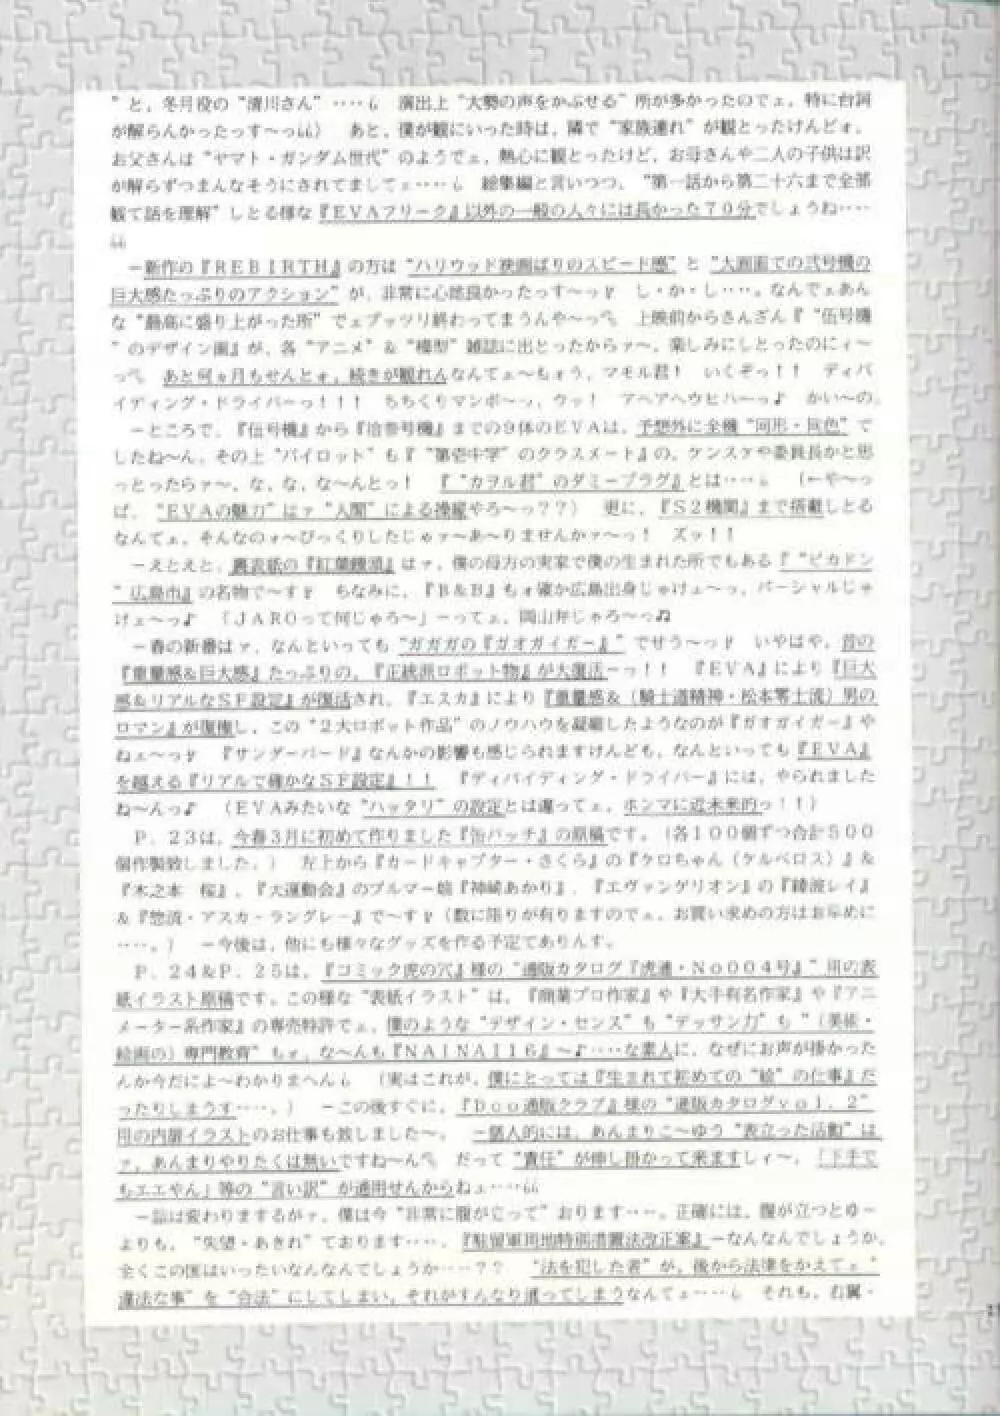 ”と、冬月役の“清川さん”‥‥。 演出上“大勢の声をかぶせる”所が多かったのでェ、特に台詞
が解らんかったっす〜っ) あと、僕が観にいった時は、隣で“家族連れ”が観とったけんどォ、
お父さんは“ヤマト・ガンダム世代”のようでェ、熱心に観とったけど、お母さんや二人の子供は訳
が解らずつまんなそうにされてましてェ‥‥。 総集編と言いつつ、“第一話から第二十六まで全部
観て話を理解”しとる様な『EVAフリーク』以外の一般の人々には長かった70分でしょうね‥‥
−新作の『REBIRTH』の方は“ハリウッド映画ばりのスピード感”と“大画面での弐号機の
巨大感たっぷりのアクション”が、非常に心地良かったっす〜っ し・か・し‥‥。なんでェあん
な“最高に盛り上がった所”でェブッツリ終わってまうんや〜っ 上映前からさんざん『“伍号機
”のデザイン画』が、各“アニメ”&“模型”雑誌に出とったからァ〜、楽しみにしとったのにィ〜
っ あと何ヵ月もせんとォ、続きが観れんなんてェ〜もォう、マモル君! いくぞっ!! ディバ
イディング・ドライバーっ!!! ちちくりマンボ〜っ、ウッ! アヘアヘウヒハーっ♪ かい〜の。
−ところで、『伍号機』から『拾参号機』までの9体のEVAは、予想外に全機“同形・同色”で
したね〜ん。その上“パイロット”も『“第壱中学”のクラスメート』の、ケンスケや委員長かと思
っとったらァ〜、な、な、な〜んとっ! 『“カヲル君”のダミープラグ』とは‥‥。 (−や〜っ
ぱ、“EVAの魅力”はァ“人間”による操縦やろ〜っ??) 更に、『S2機関』まで搭載しとる
なんてェ、そんなのォ〜びっくりしたじゃァ〜あ〜りませんかァ〜っ! ズッ!!
−えとえと、裏表紙の『紅葉饅頭』はァ、僕の母方の実家で僕の生まれた所でもある『“ピカドン
”広島市』の名物で〜す ちなみに、『B&B』もォ確か広島出身じゃけェ〜っ、パーシャルじゃ
けェ〜っ♪ 「JAROって何じゃろ〜」−ってェ、岡山弁じゃろ〜っ♫
−春の新番はァ、なんといっても“ガガガの『ガオガイガー』”でせう〜っ いやはや、昔の
『重量感&巨大感』たっぷりの、『正統派ロボット物』が大復活−っ!! 『EVA』により『巨大
感&リアルなSF設定』が復活され、『エスカ』により『重量感&(騎士道精神・松本零士流)男の
ロマン』が復権し、この“2大ロボット作品”のノウハウを凝縮したようなのが『ガオガイガー』や
ねェ〜っ 『サンダーバード』なんかの影響も感じられますけんども、なんといっても『EVA』
を越える『リアルで確かなSF設定』!! 『ディバイディング・ドライバー』には、やられました
ね〜んっ♪ (EVAみたいな“ハッタリ”の設定とは違ってェ、ホンマに近未来的っ!!)
P.23は、今春3月に初めて作りました『缶バッチ』の原稿です。(各100個ずつ合計500
個作製致しました。) 左上から『カードキャプター・さくら』の『ケロちゃん(ケルベロス)』&
『木之本 桜』、『大運動会』のブルマー娘『神崎あかり』、『エヴァンゲリオン』の『綾波レイ』
&『惣流・アスカ・ラングレー』で〜す(数に限りが有りますのでェ、お買い求めの方はお早めに
‥‥。) −今後は、他にも様々なグッズを作る予定でありんす。
P.24&P.25は、『コミック虎の穴』様の“通販カタログ『虎通・No004号』”用の表
紙イラスト原稿です。この様な“表紙イラスト”は、『商業プロ作家』や『大手有名作家』や『アニ
メーター系作家』の専売特許でェ、僕のような“デザイン・センス”も“デッサン力”も“(美術・
絵画の)専門教育”もォ、な〜んも『NAINAI16』〜♪‥‥な素人に、なぜにお声が掛かった
んか今だによ〜わかりまへん。 (実はこれが、僕にとっては『生まれて初めての“絵”の仕事』だ
ったりしまうす‥‥。) −この後すぐに、『Dco通販クラブ』様の“通販カタログvol.2”
用の内扉イラストのお仕事も致しました〜。 −個人的には、あんまりこ〜ゆう“表立った活動”は
ァ、あんまりやりたくは無いですね〜ん だって“責任”が伸し掛かって来ますしィ〜、「下手で
もエエやん」等の“言い訳”が通用せんからねェ‥‥
−話は変わりまするがァ、僕は今“非常に腹が立って”おります‥‥。正確には、腹が立つとゆ〜
よりも、“失望・あきれ”ております‥‥。『駐留軍用地特別措置法改正案』−なんなんでしょうか、
全くこの国はいったいなんなんでしょうか‥‥?? “法を犯した者”が、後から法律をかえてェ“
違法な事”を“合法”にしてしまい、それがすんなり通ってしまうなんてェ‥‥。 それも、右翼・